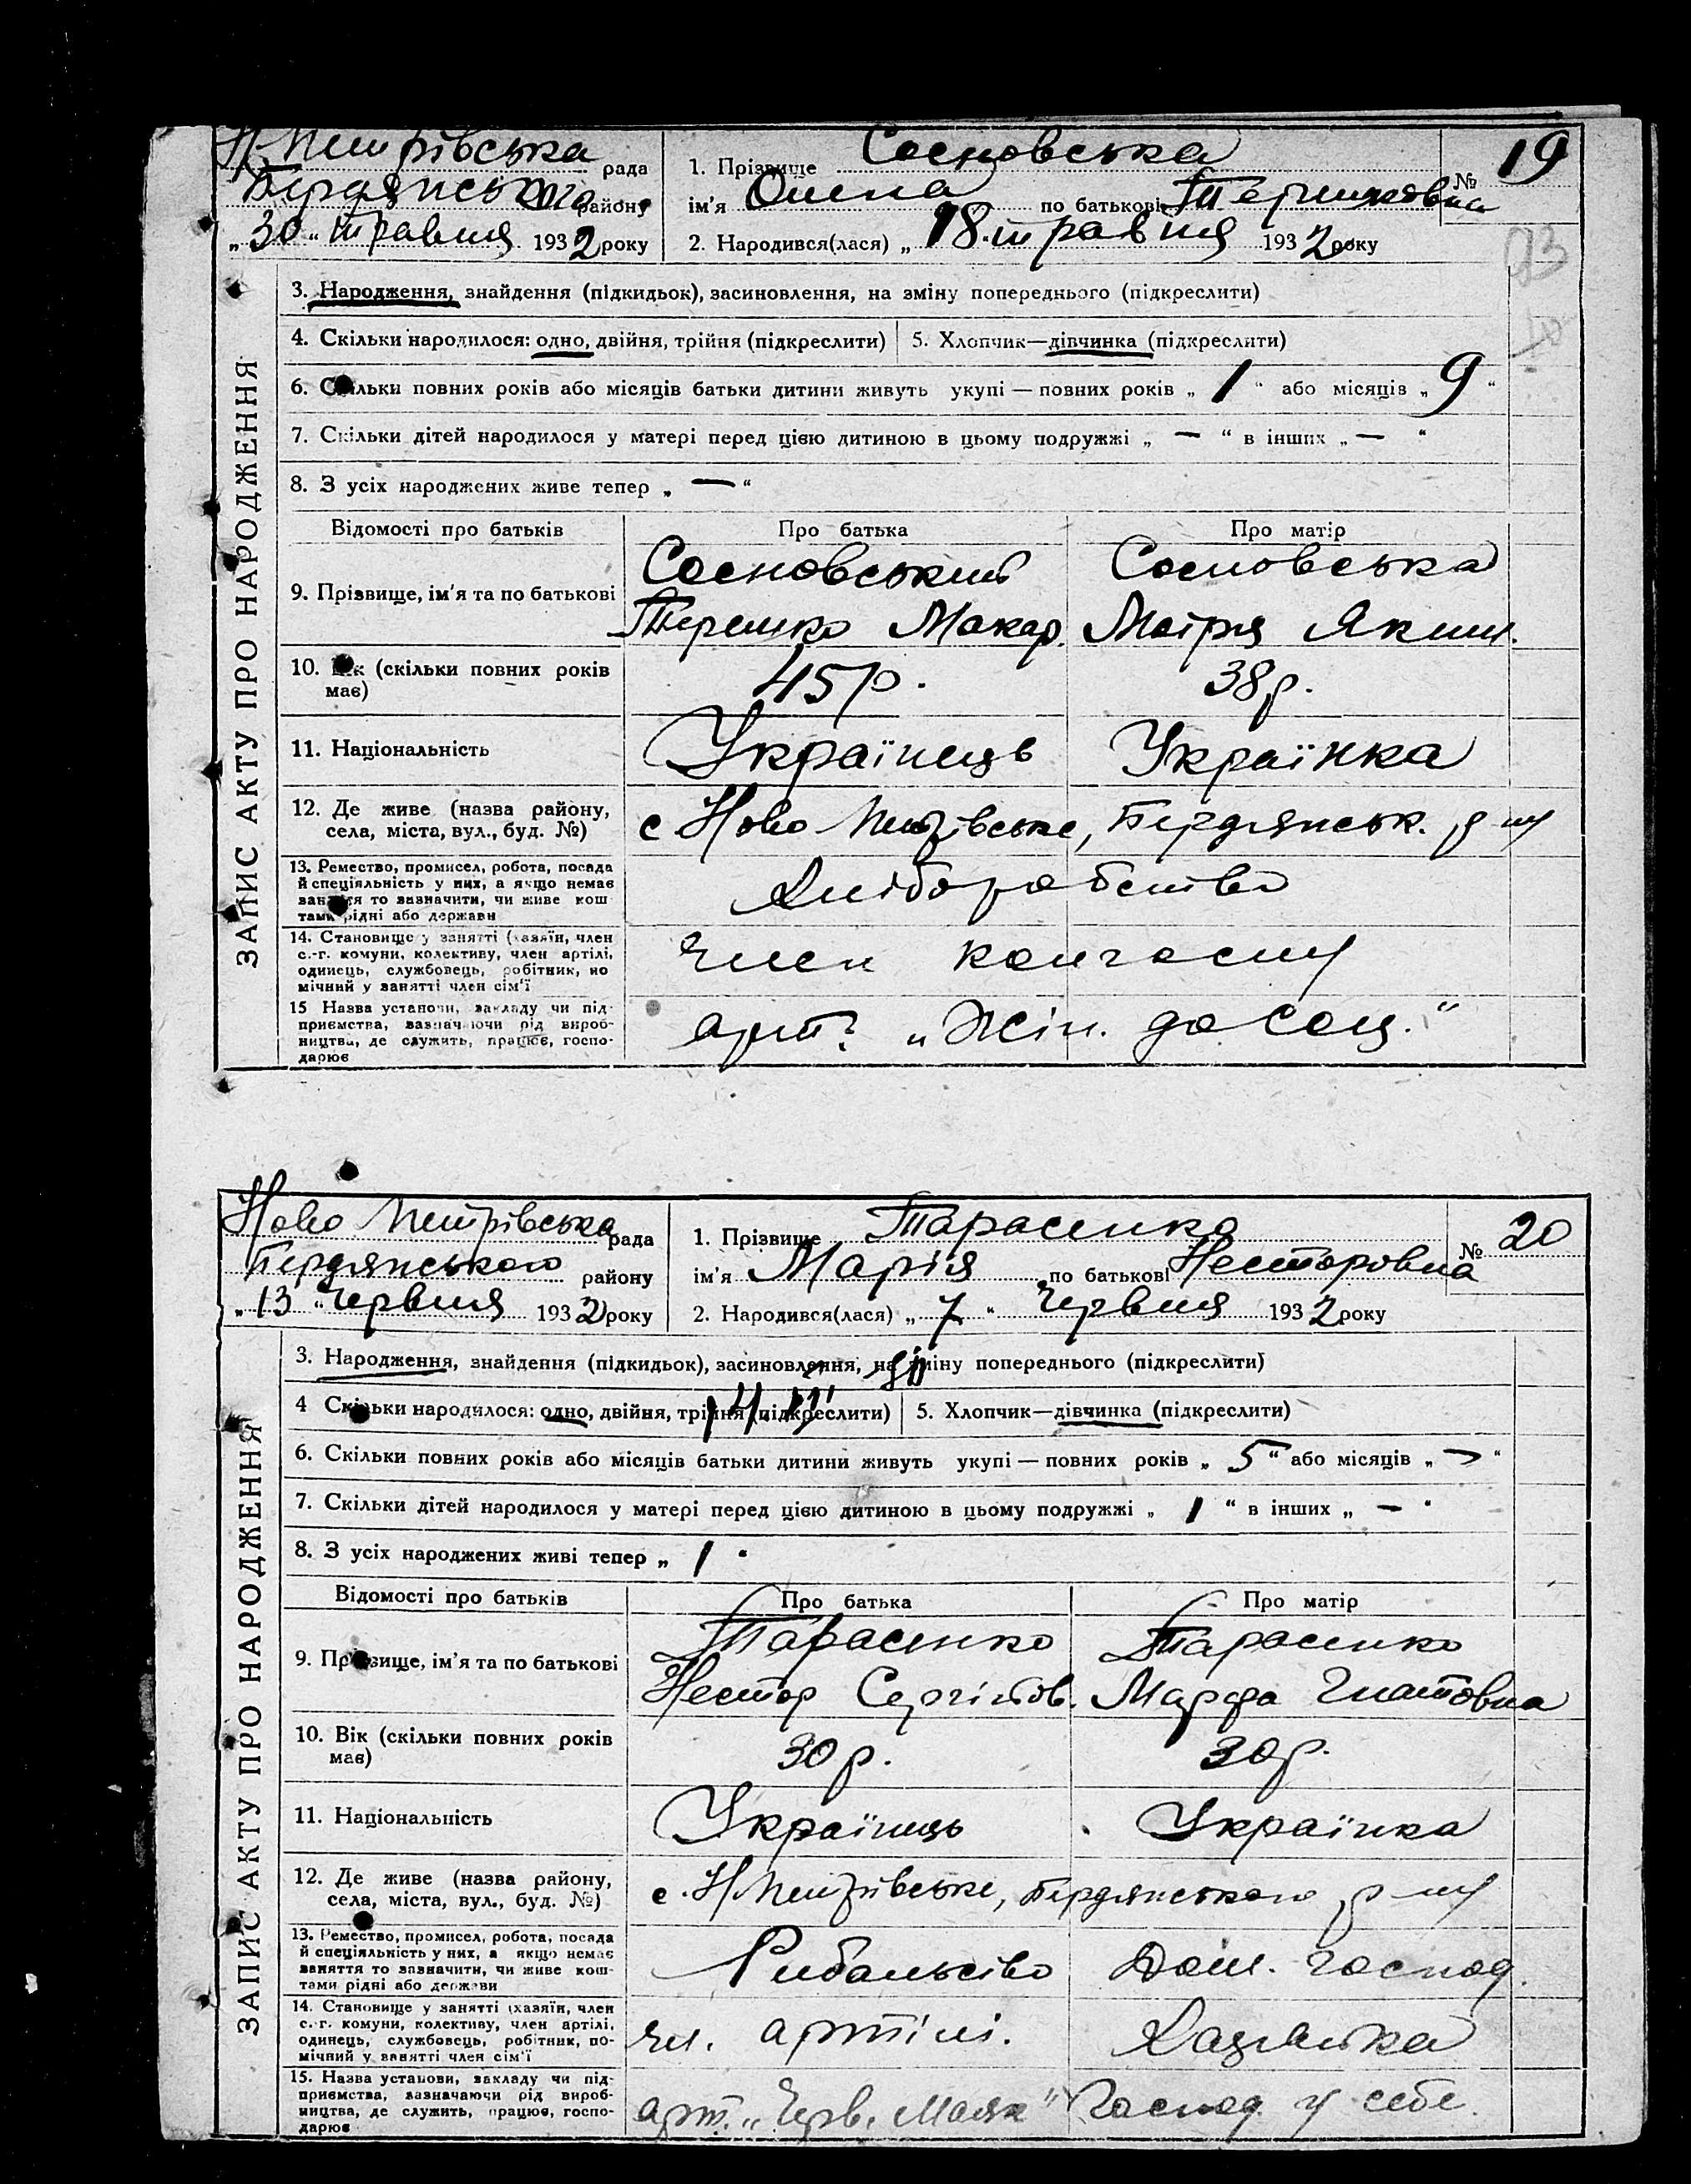 Н Петрівська рада
Бердянського району
„30“ травня 1932 року
1. Прізвище Сосновська
ім'я Олена по батькові Терешковна
2. Народився(лася) „18“ травня 1932 року
№ 19
93
ЗАПИС АКТУ ПРО НАРОДЖЕННЯ
3. Народження, знайдення (підкидьок), засиновлення, на зміну попереднього (підкреслити)
4. Скільки народилося: одно, двійня, трійня (підкреслити) 5. Хлопчик—дівчинка (підкреслити)
6. Скільки повних років або місяців батьки дитини живуть укупі — повних років „ 1 “ або місяців „ 9 “
7. Скільки дітей народилося у матері перед цією дитиною в цьому подружжі „ — “ в інших „ — “
8. З усіх народжених живе тепер „ — “
Відомості про батьків Про батька Про матір
9. Прізвище, ім'я та по батькові
Сосновський
Терешко Макар.
Сосновська
Мотря Яким.
10. Вік (скільки повних років
має)
45 р. 38 р.
11. Національність Українець Українка
12. Де живе (назва району,
села, міста, вул., буд. №)
с Ново Петрівське, Бердянськ. р-ну
13. Ремество, промисел, робота, посада
й спеціяльність у них, а якщо немає
заняття то зазначити, чи живе кош
тами рідні або держави
Хлібо робство
14. Становище у занятті (хазяїн, член
с.-г. комуни, колективу, член артілі,
одинець, службовець, робітник, по
мічний у занятті член сім'ї
член колгоспу
15 Назва установи, закладу чи під-
приємства, зазначаючи рід вироб-
ництва, де служить, працює, госпо-
дарює
арт. „Жін. до соц.“
Ново Петрівська рада
Бердянського району
„13“ червня 1932 року
1. Прізвище Тарасенко
ім'я Марія по батькові Несторовна
2. Народився(лася) „7“ червня 1932 року
№ 20
ЗАПИС АКТУ ПРО НАРОДЖЕННЯ
3. Народження, знайдення (підкидьок), засиновлення, на зміну попереднього (підкреслити)
4 Скільки народилося: одно, двійня, трійня (підкреслити) 5. Хлопчик—дівчинка (підкреслити)
6. Скільки повних років або місяців батьки дитини живуть укупі — повних років „ 5 “ або місяців „ — “
7. Скільки дітей народилося у матері перед цією дитиною в цьому подружжі „ 1 “ в інших „ — “
8. З усіх народжених живі тепер „ 1 “
Відомості про батьків Про батька Про матір
9. Прізвище, ім'я та по батькові
Тарасенко
Нестор Сергійов.
Тарасенко
Марфа Гнатовна
10. Вік (скільки повних років
має)
30 р. 30 р.
11. Національність Українець Українка
12. Де живе (назва району,
села, міста, вул., буд. №)
с. Н Петрівське, Бердянського р-ну
13. Ремество, промисел, робота, посада
й спеціяльність у них, а якщо немає
заняття то зазначити, чи живе кош-
тами рідні або держави
Рибальсво Дом. господ.
14. Становище у занятті (хазяїн, член
с.-г. комуни, колективу, член артілі,
одинець, службовець, робітник, по-
мічний у занятті член сім'ї
чл. артілі. Хазяйка
15. Назва установи, закладу чи під-
приємства, зазначаючи рід вироб-
ництва, де служить, працює, госпо-
дарює
арт. „Черв. Маяк“ Господ. у себе.